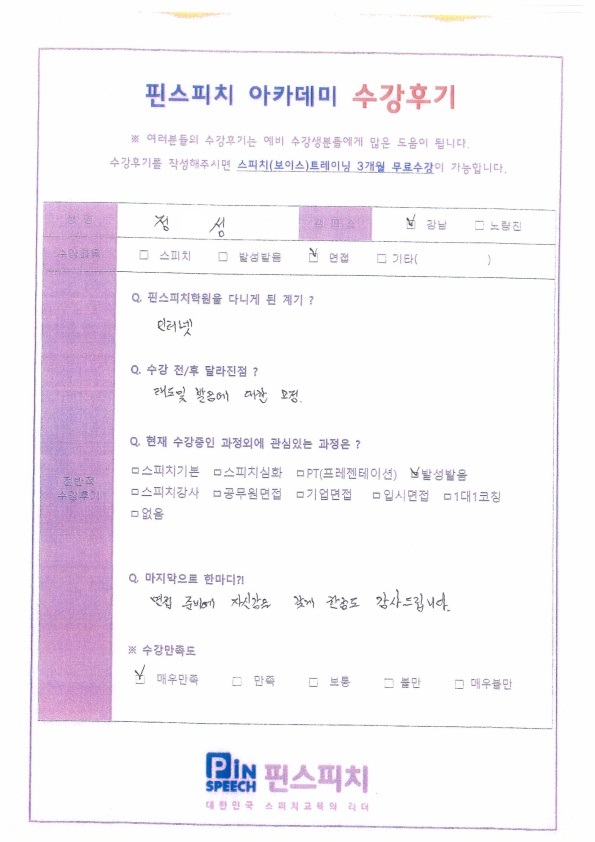 핀스피치 아카데미 수강후기
※ 여러분들의 수강후기는 예비 수강생분들에게 많은 도움이 됩니다.
수강후기를 작성해주시면 스피치(보이스)트레이닝 3개월 무료수강이 가능합니다.
성 명 정 성 캠퍼스 강남 노량진
수강과목 스피치 발성발음 면접 기타( )
Q. 핀스피치학원을 다니게 된 계기 ?
인터넷
Q. 수강 전/후 달라진점 ?
태도및 발음에 대한 교정.
전반적
수강후기
Q. 현재 수강중인 과정외에 관심있는 과정은 ?
스피치기본 스피치심화 PT(프레젠테이션) 발성발음
스피치강사 공무원면접 기업면접 입시면접 1대1코칭
없음
Q. 마지막으로 한마디?!
면접 준비에 자신감을 갖게 감사드립니다.
※ 수강만족도
매우만족 만족 보통 불만 매우불만
PiN SPEECH 핀스피치
대한민국 스피치교육의 리더